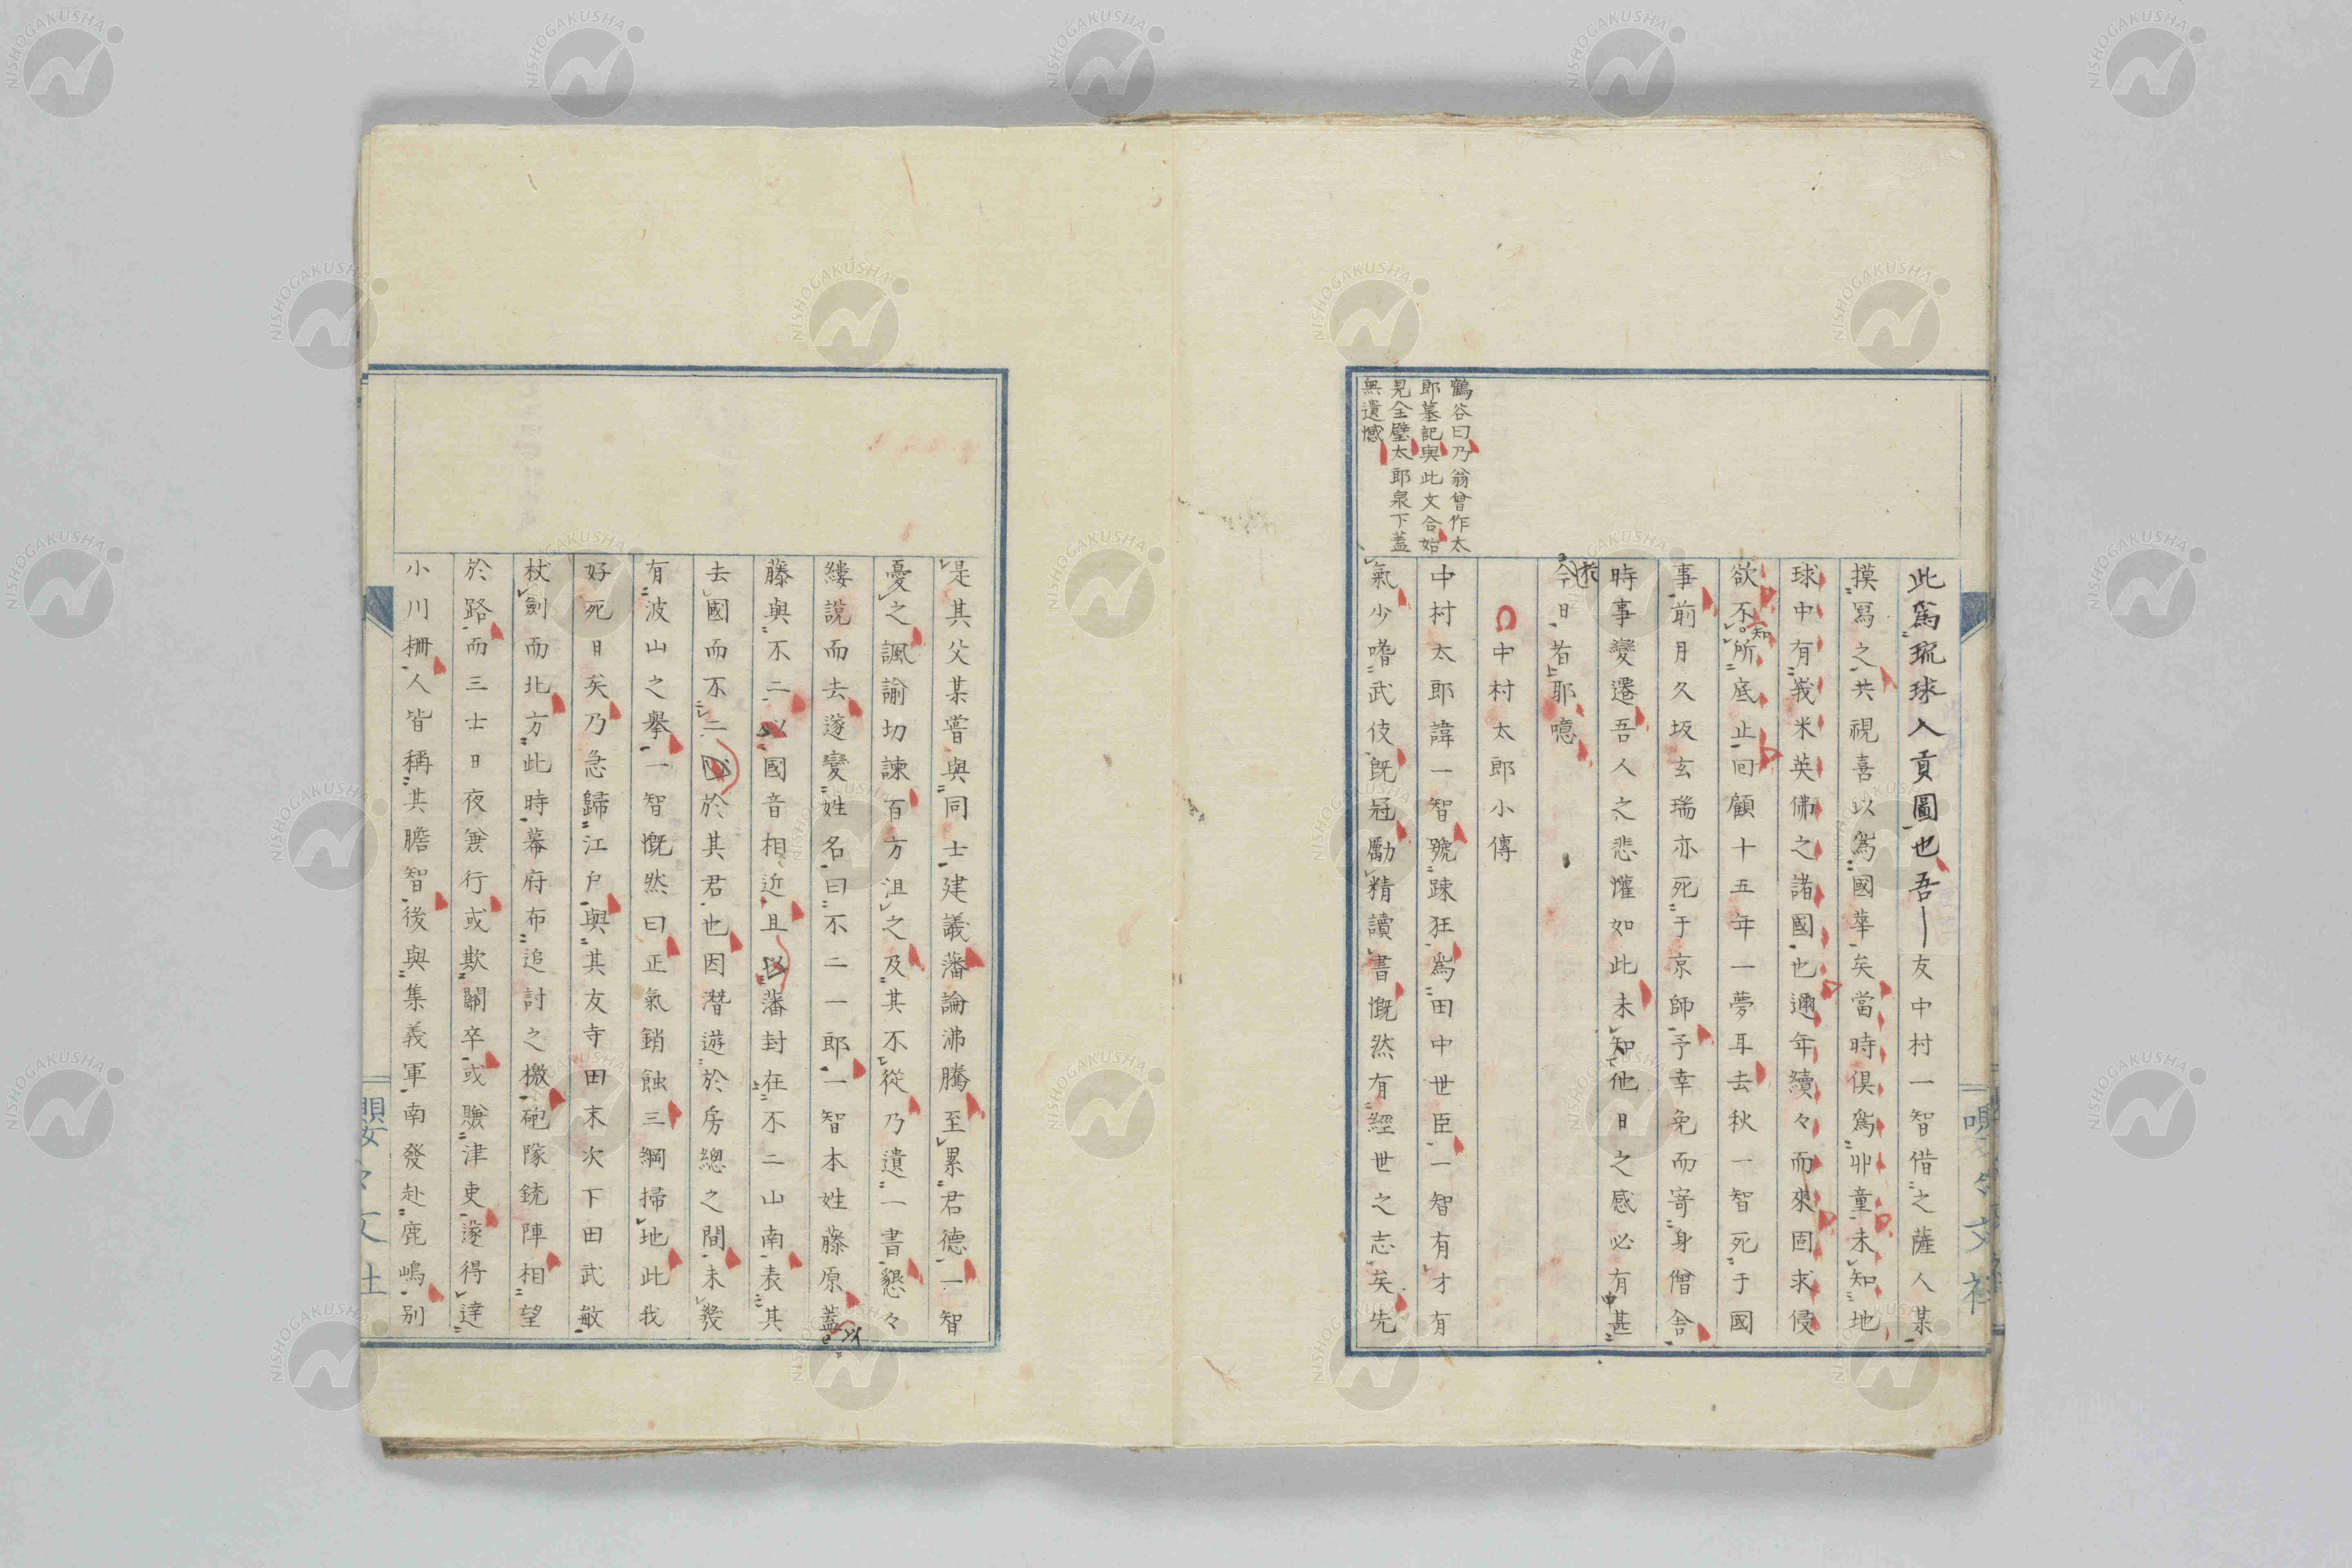 此爲琉球入貢圖也吾友中村一智借之薩人某
摸寫之共視喜以爲國華矣當時倶爲丱童未知地
球中有峩米英佛之諸國也邇年續々而來固求侵
欲不知所底止回顧十五年一夢耳去秋一智死于國
事前月久坂玄瑞亦死于京師予幸免而寄身僧舎
時事變遷吾人之悲懽如此未知他日之感必有甚
於今日者耶噫
中村太郎小傳
中村太郎諱一智號踈狂爲田中世臣一智有才有
氣少嗜武伎既冠勵精讀書慨然有經世之志矣先
鶴谷曰乃翁曾作太
郎墓記與此文合始
見全璧太郎泉下蓋
無遺憾
嚶々文社
是其父某嘗與同士建議藩論沸騰至累君德一智
憂之諷諭切諫百方沮之及其不從乃遺一書懇々
縷說而去遂變姓名曰不二一郎一智本姓藤原蓋以
藤與不二國音相近且藩封在不二山南表其
去國而不二於其君也因潛遊於房總之間未幾
有波山之擧一智慨然曰正氣銷蝕三綱掃地此我
好死日矣乃急歸江戶與其友寺田末次下田武敏
杖劍而北方此時幕府布追討之檄砲隊銃陣相望
於路而三士日夜兼行或欺關卒或賺津吏遂得達
小川柵人皆稱其膽智後與集義軍南發赴鹿嶋別
嚶々文社
NISHOGAKUSHA